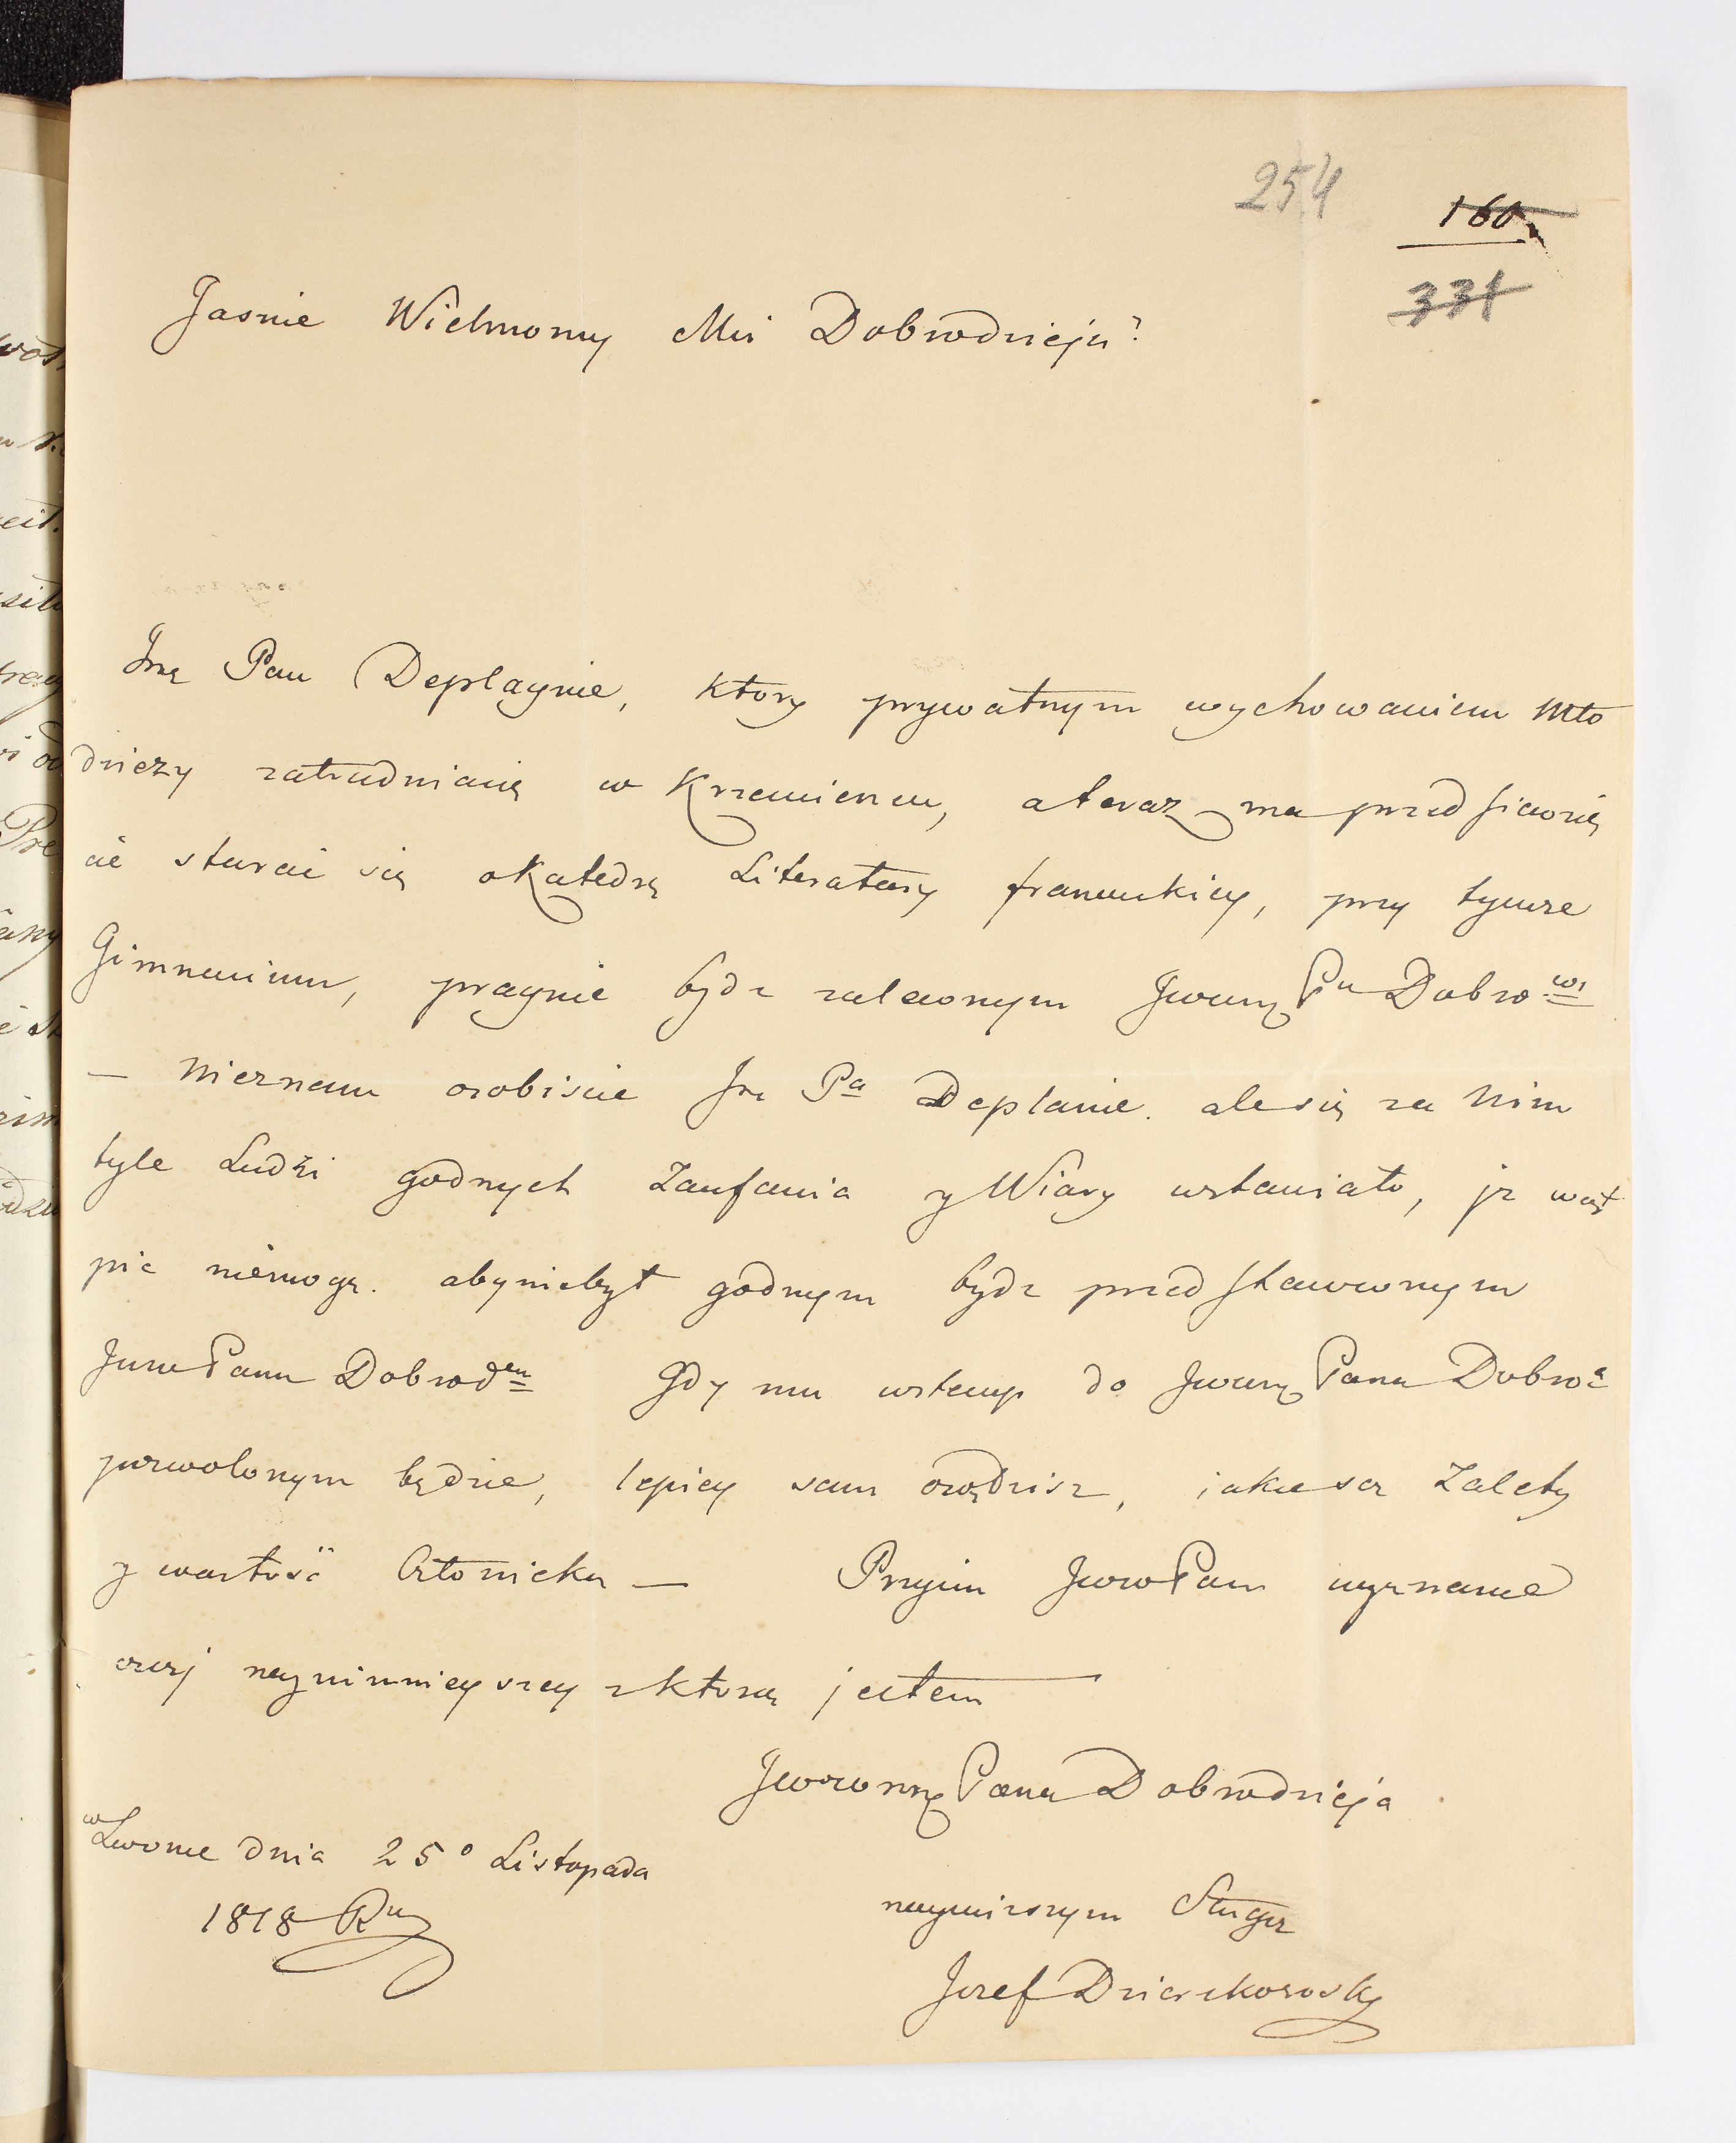 254
160.
331
Jasnie Wielmozny Mci Dobrodzieju!
Jmę Pan Deplagnie, ktory prywatnym wychowaniem mło
dziezy zatrudnianię w Krzemiencu, a teraz ma przed siawzię
cie starać się o Katedrę Literatury francuskiey, przy tymze
Gimnazium, pragnie bydz zaleconym Jwmę Pu Dobro wi
— Nieznam osobiscie Jm Pa Deplanie. ale się za Nim
tyle Ludzi godnych Zaufania y Wiary wstawiało, jz wąt
pic niémogę. abyniebył godnym bydz przed stawionym
Jww Panu Dobrod eu Gdy mu wstemp do Jwmę Pana Dobro a
pozwolonym będzie, lepiey sam osądzisz, jakie są Zalety
y wartość Człowieka — Przyim Jww Pan wyznanie
czci nayninnieyszey z ktorą jestem
Jwwmę Pana Dobrodzieja
w Lwowie dnia 25o Listopada
1818 Ru
nayniższym Sługą
Jozef Dzierzkowsky